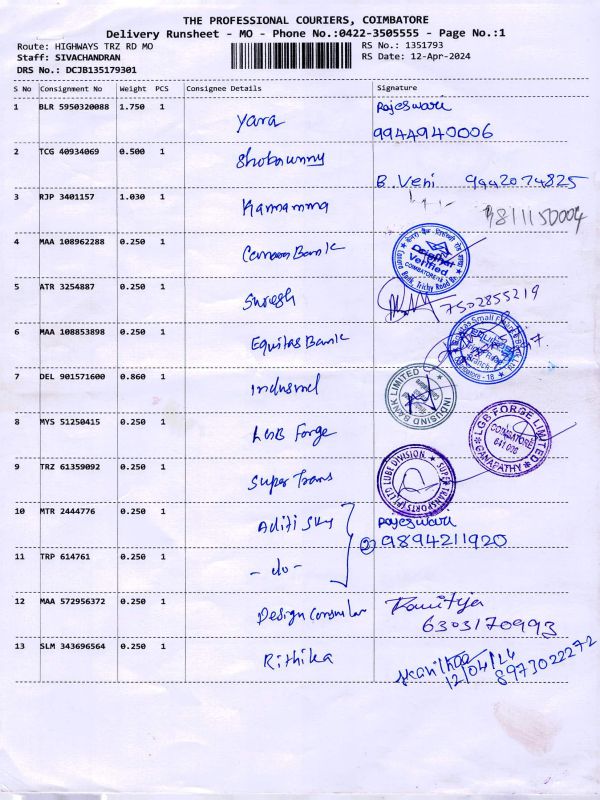 THE PROFESSIONAL COURIERS, COIMBATORE
Delivery Runsheet - MO - Phone No.:0422-3505555 - Page No.:1
Route: HIGHWAYS TRZ RD MO
RS No.: 1351793
Staff: SIVACHANDRAN
RS Date: 12-Apr-2024
DRS No.: DCJB135179301
S No Consignment No Weight PCS Consignee Details Signature
1 BLR 5950320088 1.750 1 Yara Rajeswari
9944940006
2 TCG 40934069 0.500 1
B. Veni 9442074825
3 RJP 3401157 1.030 1 Kannamma
9811150004
4 MAA 108962288 0.250 1 Canara Bank
Original
Verified
COIMBATORE-18
5 ATR 3254887 0.250 1 Suresh
7502855219
6 MAA 108853898 0.250 1 Equitas Bank
7 DEL 901571600 0.860 1 Indusind
INDUSIND BANK LIMITED
8 MYS 51250415 0.250 1 LGB Forge
LGB FORGE LIMITED
COIMBATORE
641 006
GANAPATHY
9 TRZ 61359092 0.250 1 Super Trans
LUBE DIVISION
SUPER TRANSPORTS (P) LTD
10 MTR 2444776 0.250 1 Aditi Sky Rajeswari
② 9894211920
11 TRP 614761 0.250 1 - do -
12 MAA 572956372 0.250 1 Design
6303170993
13 SLM 343696564 0.250 1 Rithika
12/04/24
8973022272